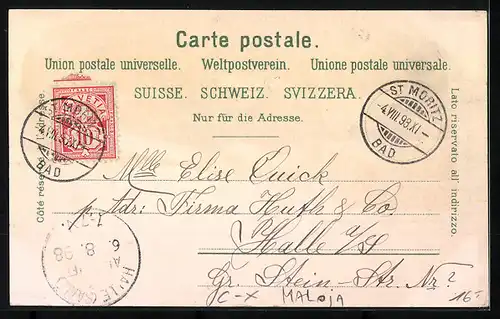 Carte postale.
Union postale universelle. Weltpostverein. Unione postale universale.
SUISSE. SCHWEIZ. SVIZZERA.
Nur für die Adresse.
Côté réservé à l'adresse.
Lato riservato all' indirizzo.
HELVETIA
10
ST MORITZ
-4.VIII.98.XI-
BAD
ST MORITZ
-4.VIII.98.XI-
BAD
Mlle Elise Quick
p. Adr: Firma Huth & Co.
Halle a/S
Gr. Stein-Str. Nr?
HALLE (SAALE)
6. 8. 98
C-X MALOJA
16